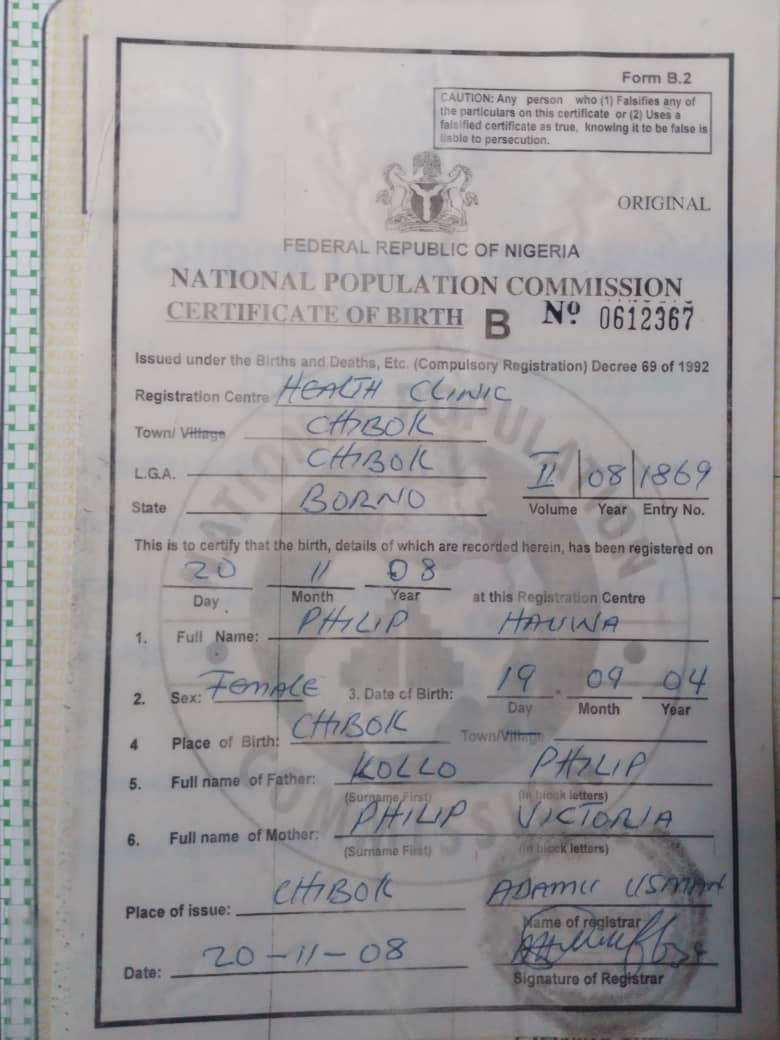 Form B.2
CAUTION: Any person who (1) Falsifies any of
the particulars on this certificate or (2) Uses a
falsified certificate as true, knowing it to be false is
liable to persecution.
ORIGINAL
FEDERAL REPUBLIC OF NIGERIA
NATIONAL POPULATION COMMISSION
CERTIFICATE OF BIRTH B Nº 0612367
Issued under the Births and Deaths, Etc. (Compulsory Registration) Decree 69 of 1992
Registration Centre HEALTH CLINIC
Town/ Village CHIBOK
L.G.A. CHIBOK
State BORNO
II 08 1869
Volume Year Entry No.
This is to certify that the birth, details of which are recorded herein, has been registered on
20 11 08
Day Month Year at this Registration Centre
1. Full Name: PHILIP HAUWA
2. Sex: FEMALE 3. Date of Birth: 19 09 04
Day Month Year
4 Place of Birth: CHIBOK Town/Village
5. Full name of Father: KOLLO PHILIP
(Surname First) (In block letters)
6. Full name of Mother: PHILIP VICTORIA
(Surname First) (In block letters)
Place of issue: CHIBOK ADAMU USMAN
Name of registrar
Date: 20-11-08
Signature of Registrar
NATIONAL POPULATION COMMISSION